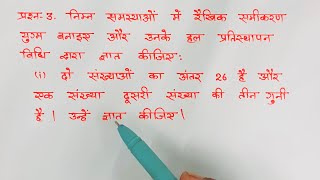 प्रश्न: 3. निम्न समस्याओं में रैखिक समीकरण
युग्म बनाइए और उनके हल प्रतिस्थापन
विधि द्वारा ज्ञात कीजिए:
(i) दो संख्याओं का अंतर 26 है और
एक संख्या दूसरी संख्या की तीन गुनी
है। उन्हें ज्ञात कीजिए।